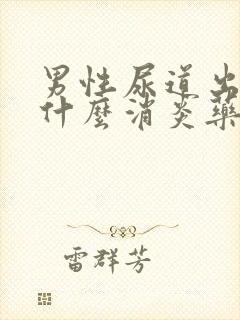 男性尿道出
什麼消炎藥
雷群芳